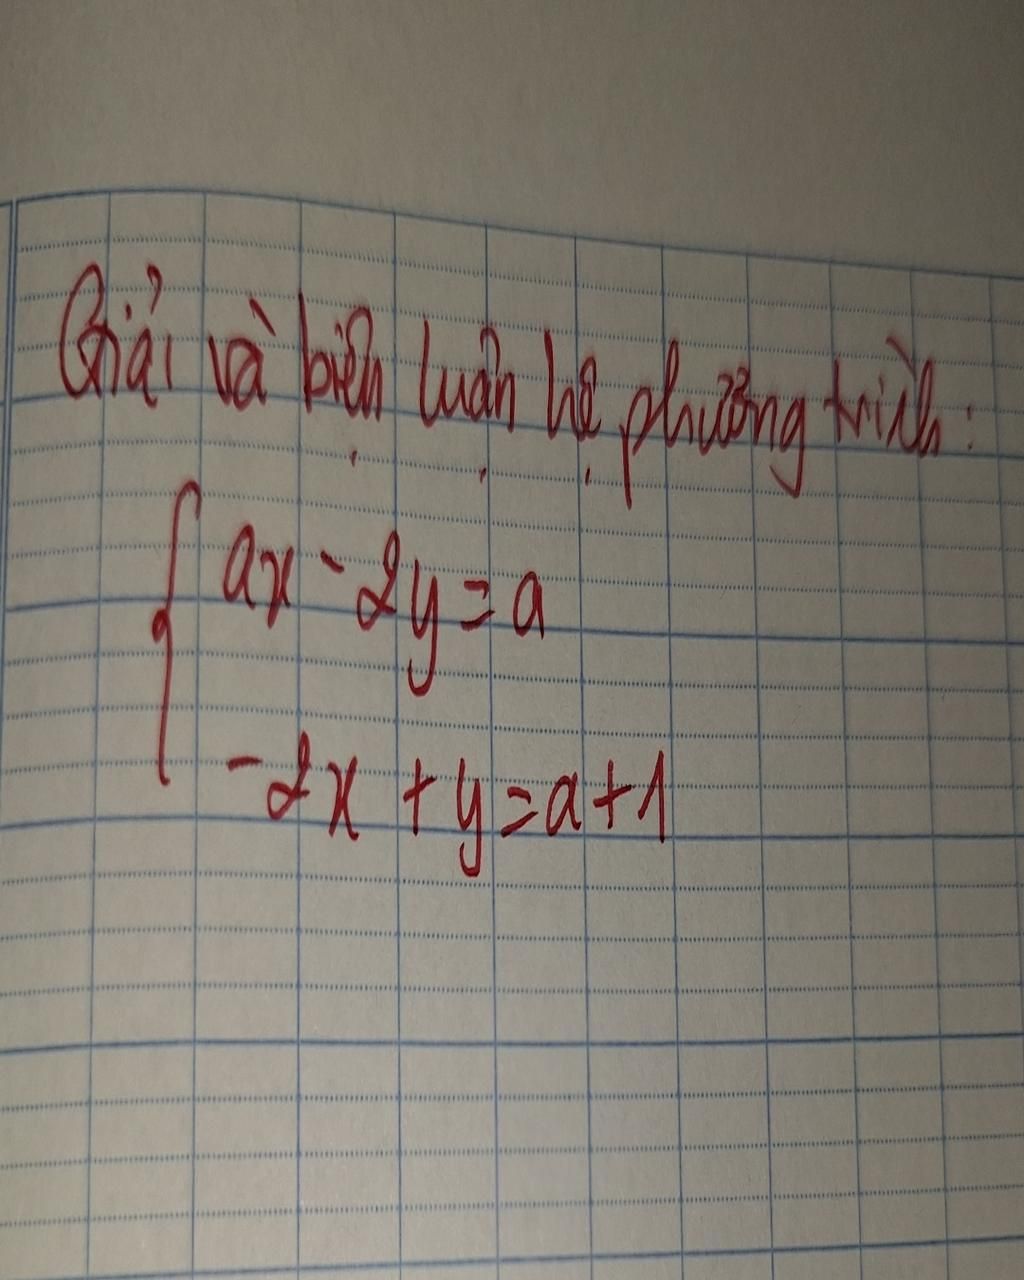 Giải và biện luận hệ phương trình:
ax - 2y = a
-2x + y = a + 1